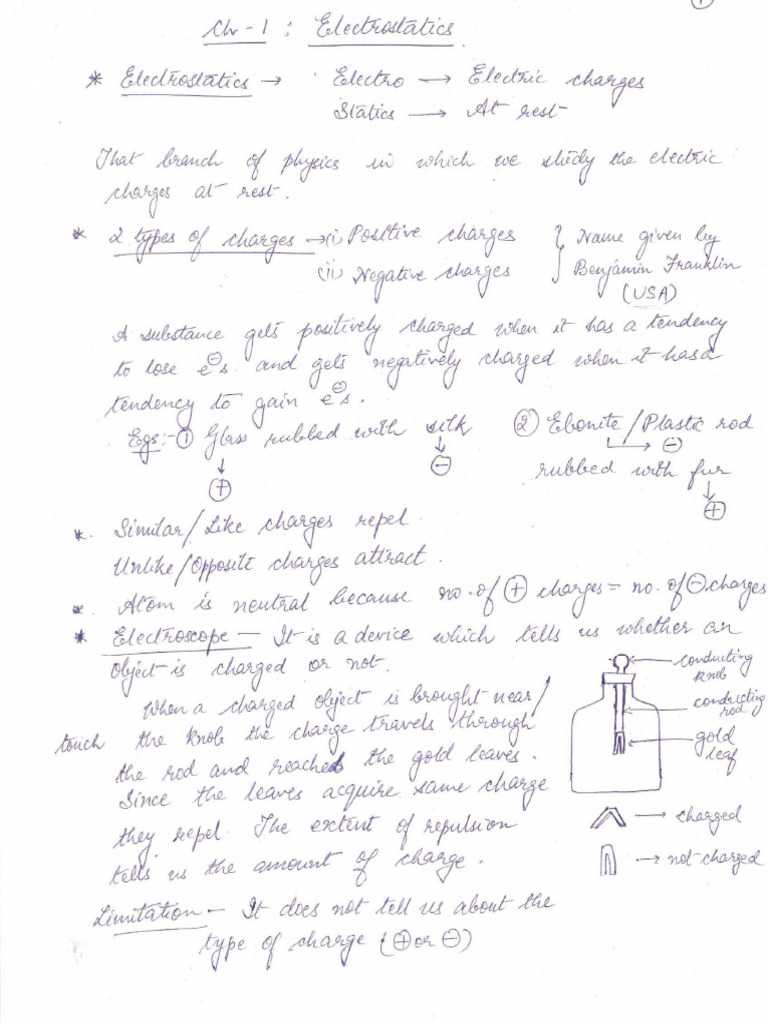 1
Ch-1 : Electrostatics
* Electrostatics → Electro → Electric charges
Statics → At rest
That branch of physics in which we study the electric
charges at rest.
* 2 types of charges → (i) Positive charges } Name given by
(ii) Negative charges Benjamin Franklin
(USA)
A substance gets positively charged when it has a tendency
to lose e⊖s. and gets negatively charged when it has a
tendency to gain e⊖s.
Egs:- ① Glass rubbed with silk ② Ebonite/Plastic rod
↓ ↓ → ⊖
⊕ ⊖ rubbed with fur
↓
⊕
*. Similar/Like charges repel.
Unlike/Opposite charges attract.
*. Atom is neutral because no. of ⊕ charges = no. of ⊖ charges
* Electroscope – It is a device which tells us whether an
object is charged or not.
When a charged object is brought near/
touch the knob the charge travels through
the rod and reaches the gold leaves.
Since the leaves acquire same charge
they repel. The extent of repulsion
tells us the amount of charge.
Limitation – It does not tell us about the
type of charge (⊕ or ⊖)
conducting
knob
conducting
rod
gold
leaf
→ charged
→ not charged